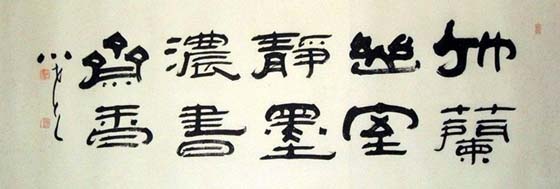 竹蘭
幽室
靜墨
濃書
齋香